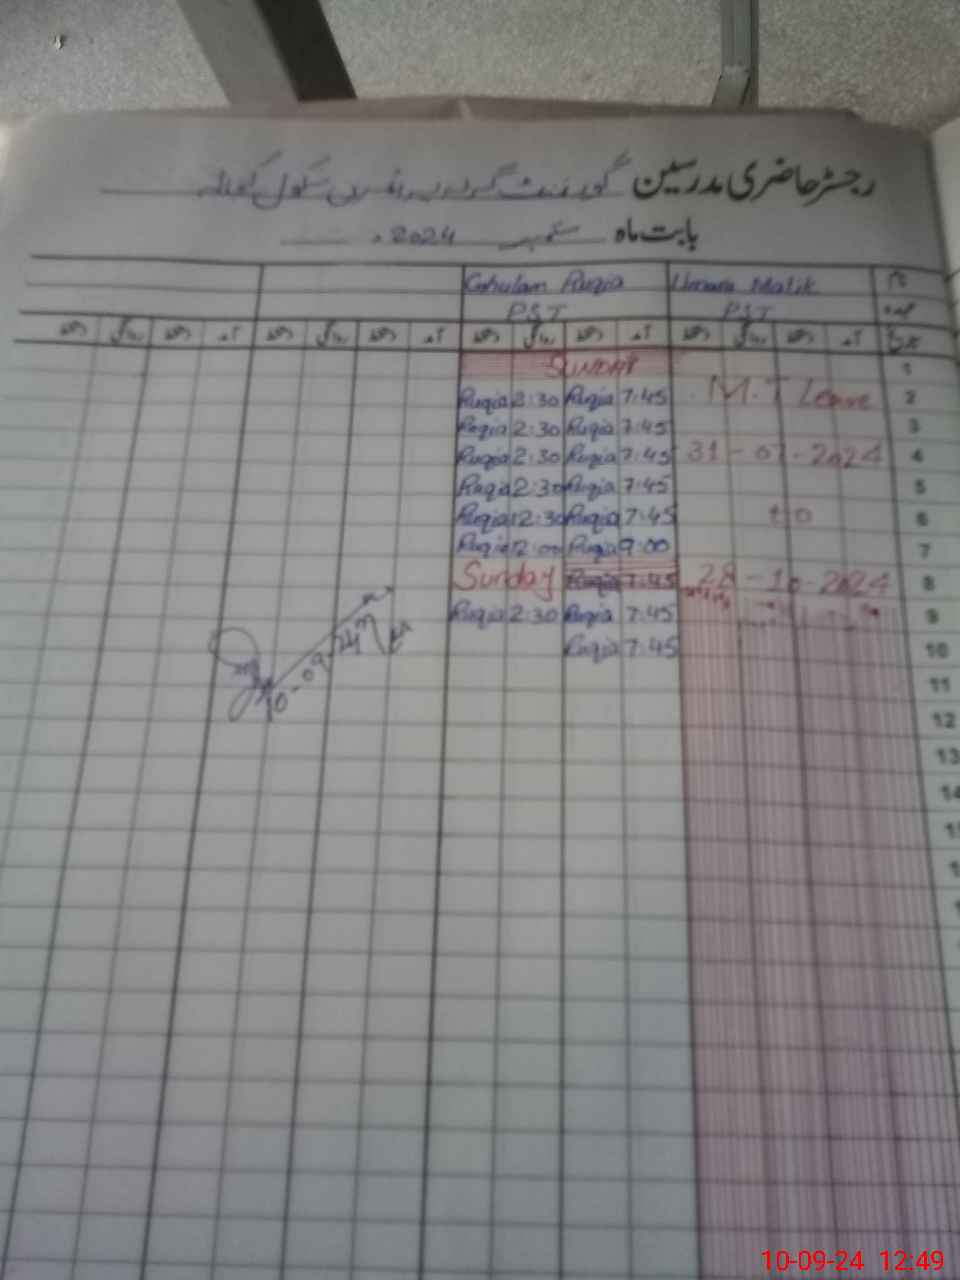 رجسٹر حاضری مدرسین گورنمنٹ گرلز پرائمری سکول
بابت ماہ ستمبر 2024ء
Ghulam Ruqia Umara Malik نام
PST PST عہدہ
دستخط روانگی دستخط آمد دستخط روانگی دستخط آمد دستخط روانگی دستخط آمد دستخط روانگی دستخط آمد تاریخ
SUNDAY 1
Ruqia 2:30 Ruqia 7:45 M.T Leave 2
Ruqia 2:30 Ruqia 7:45 3
Ruqia 2:30 Ruqia 7:45 31-07-2024 4
Ruqia 2:30 Ruqia 7:45 5
Ruqia 12:30 Ruqia 7:45 to 6
Ruqia 12:00 Ruqia 9:00 7
Sunday Ruqia 7:45 28-10-2024 8
Ruqia 2:30 Ruqia 7:45 9
Ruqia 7:45 10
10-09-24
11
12
13
14
10-09-24 12:49